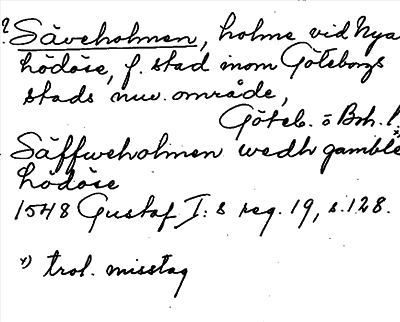 ? Säveholmen, holme vid Nya
hödöse, f. stad inom Göteborgs
stads nuv. område,
Göteb. o Boh. l
Säffweholmen wedh gamble
hödöse
1548 Gustaf I:s reg. 19, s. 128.
*) trol. misstag